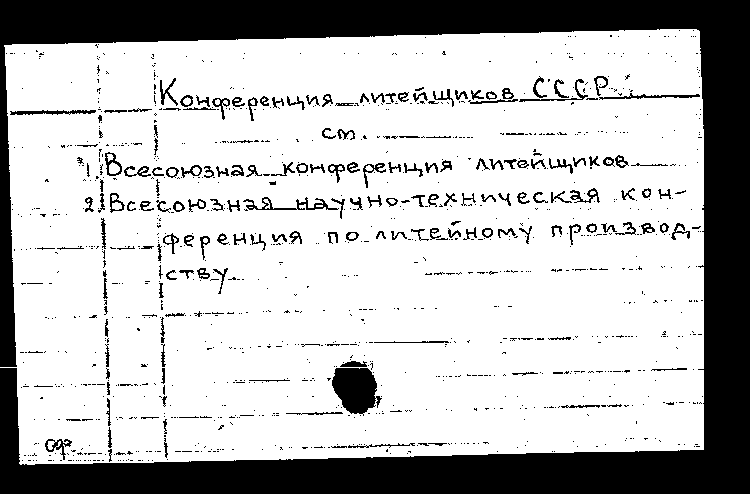 Конференция литейщиков СССР
см.
1. Всесоюзная конференция литейщиков.
2. Всесоюзная научно-техническая кон-
ференция по литейному производ-
ству.